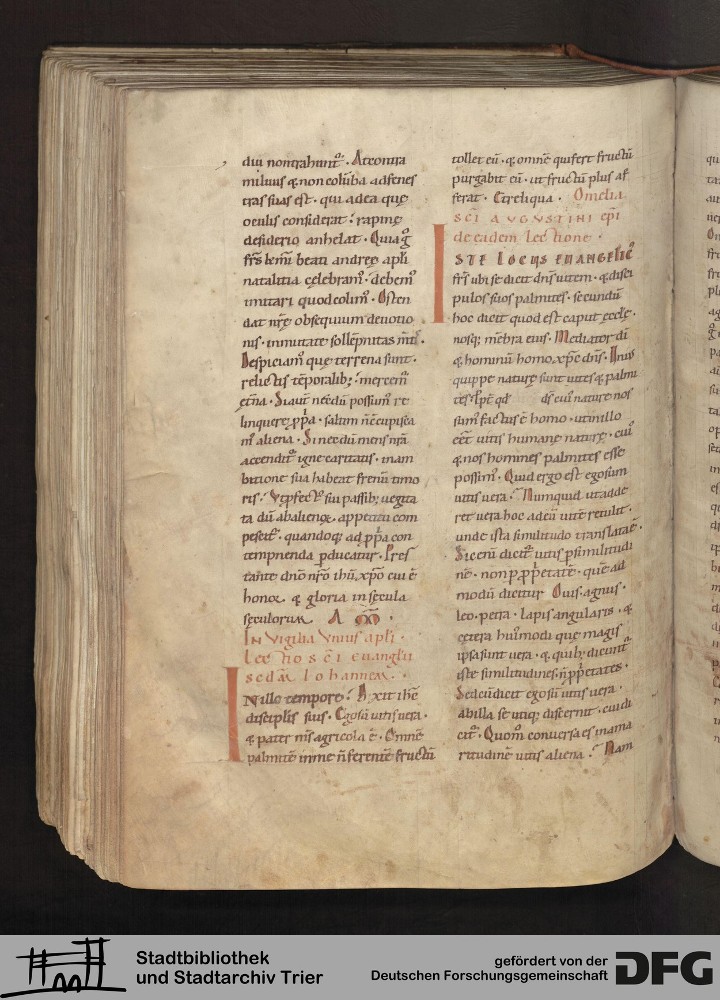 diu non trahunt͛. At contra
miluus & non colūba ad senes
tras suas est. qui adea quę
oculis considerat; rapinę
desiderio anhelat. Quia g̊
frs̄ kmī beati andreę apłi
natalitia cęlebram͛. debem͛
imitari quod colim͛. Osten
dat nr̄ę obsequium deuotio
nis. inmutate sollēpnitas mīs.
Despiciam͛ quę terrena sunt.
relictis tēporalib; mercem͛
ęt̄na. Si aut̄ necdū possum͛ re
linquere p̱pa. saltim n̄ ēcupisca
m͛ aliena. Si necdū mens nr̄a
accendit͛ igne caritatis. in am
bitione sua habeat frenū timo
ris. Vt p̱fect͛ sui passib; uegeta
ta dū ab alienoꝝ appetitu com
pescit͛. quandoq; ad p̱pa con
tempnenda p̱ducatur. Pres
tante dn̄o nr̄o ih̄ū xp̄o cui ē
honor & gloria in sęcula
sęculorum AM
IN Vigilia Vnius apłi.
Lectio sc̄i euangłii
scd̄m Iohannem.
IN illo tempore. Dixit ih̄c
discipłis suis. Ego sū uitis uera.
& pater ms̄ agricola ē. Omnē
palmitē in me n̄ ferentē fructū
tollet eū. & omnē qui fert fructū
purgabit eū. ut fructū plus af
ferat. Et reliqua. Omelia
SC̄I AVGVSTINI ep̄i
de eadem lectione.
ISTE LOCUS EUANGELIC͛
fr̄s ubi se dicit dn̄s uitem. & disci
pulos suos palmites. secundū
hoc dicit quod est caput ęcclę.
nosq; mēbra eius. Mediator dī
& hominū homo xp̄c ih̄s. Unius
quippe naturę sunt uites & palmi
tes. ꝓpt̄ qd̄ cū ds̄ eēt cui͛ naturę nos
sum͛ factus ē homo. ut in illo
eēt uitis humana natura. cui͛
& nos homines palmites esse
possim͛. Quid ergo est ego sum
uitis uera. Numquid ut adde
ret uera hoc adeū uitē retulit.
unde ista similitudo translata ē.
Sic enī dicit͛ uitis p̱ similitudi
nē. non p̱ p̱pietatē. quē ad
modū dicitur Ouis. agnus.
leo. petra. lapis angularis. &
cętera hui͛modi quę magis
ipsa sunt uera. & quib; dicunt͛
istę similitudines. n̄ p̱pietates.
Sed cū dicit ego sū uitis uera.
ab illa se utiq; discernit. cui di
cit͛. Quom͛ conuersa es in ama
ritudinē uitis aliena. Nam
Stadtbibliothek
und Stadtarchiv Trier
gefördert von der
Deutschen Forschungsgemeinschaft
DFG